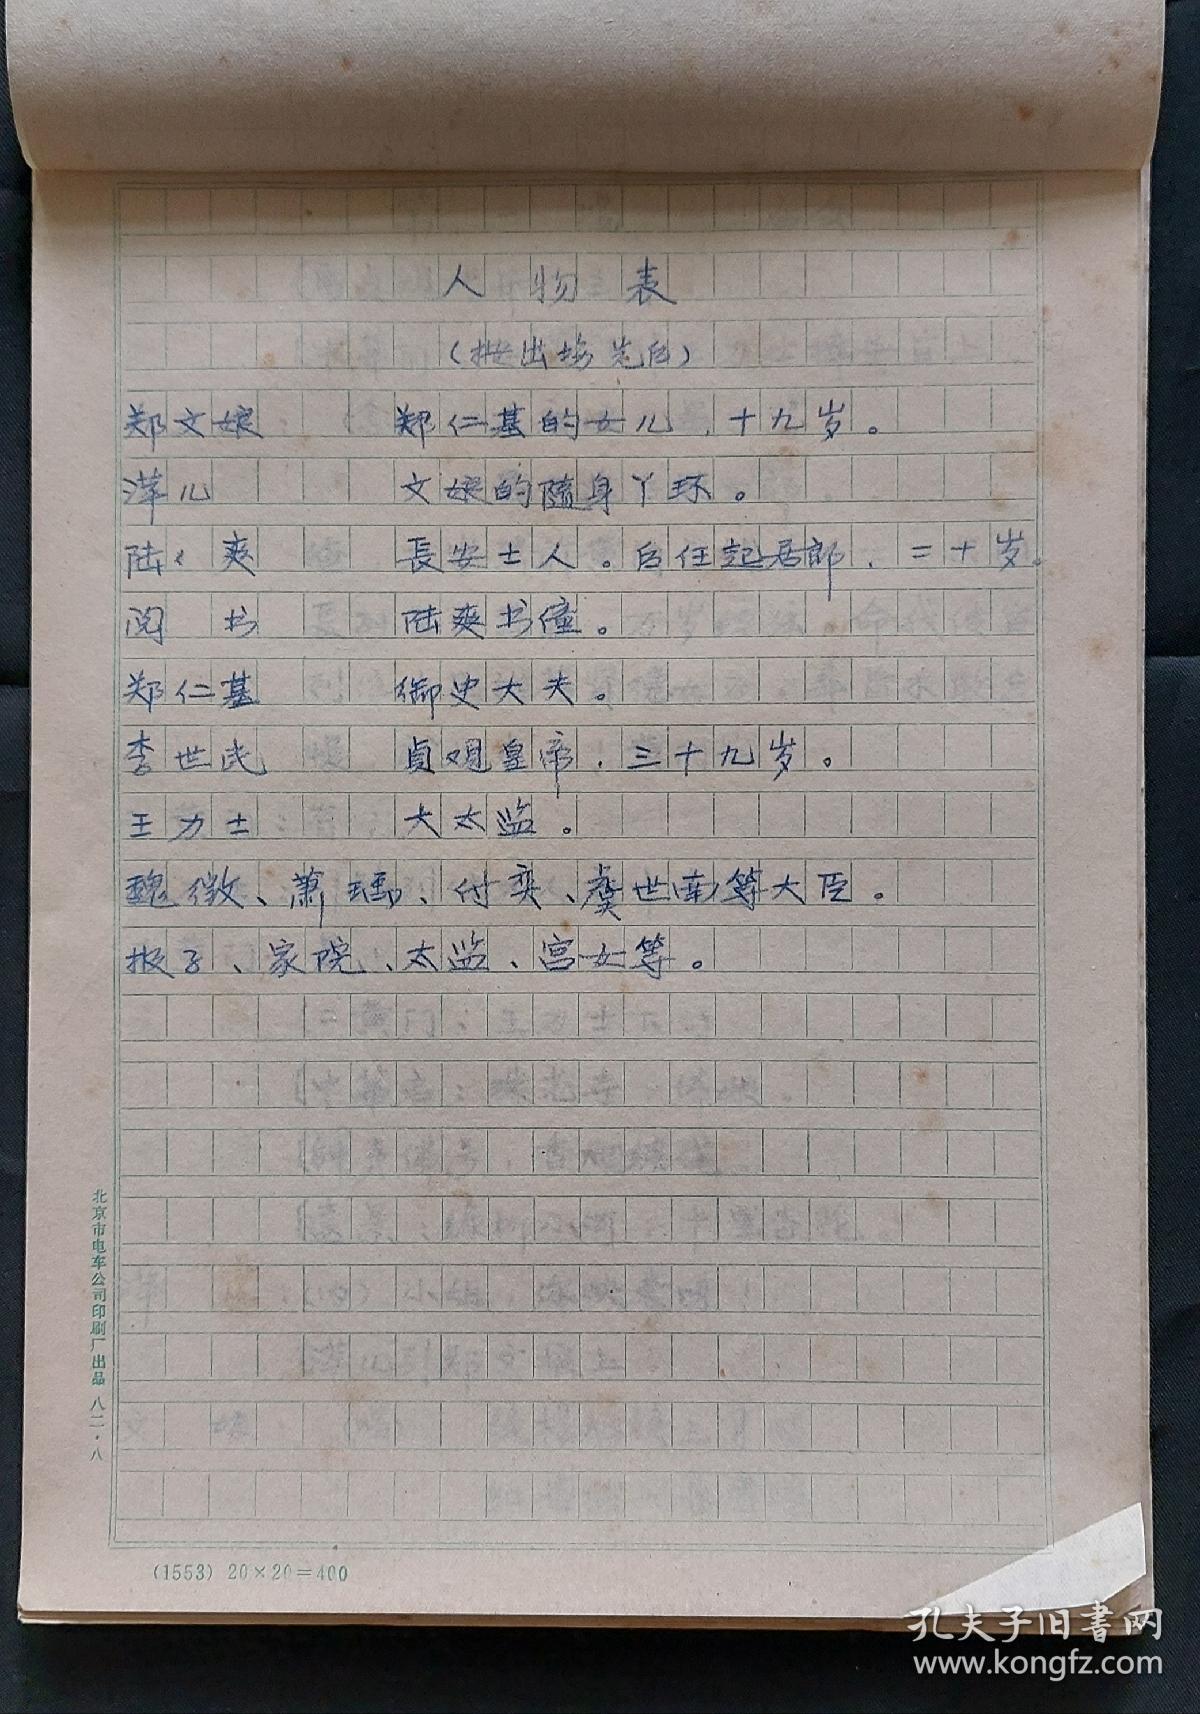 人物表
(按出场先后)
郑文娘 郑仁基的女儿，十九岁。
萍儿 文娘的随身丫环。
陆爽 長安士人。后任起居郎，二十岁。
阅书 陆爽书僮。
郑仁基 御史大夫。
李世民 貞观皇帝，三十九岁。
王力士 大太监。
魏徵、萧瑀、付奕、虞世南等大臣。
报子、家院、太监、宫女等。
北京市电车公司印刷厂出品 八二·八
(1553) 20×20=400
孔夫子旧書网
www.kongfz.com